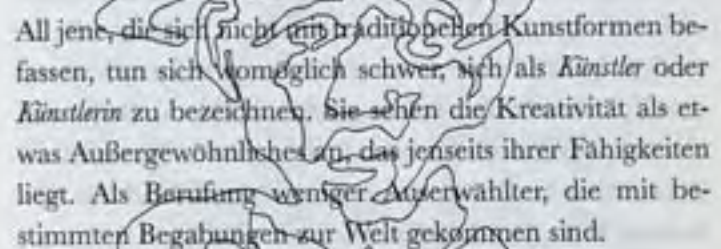 All jene, die sich nicht mit traditionellen Kunstformen be-
fassen, tun sich womöglich schwer, sich als Künstler oder
Künstlerin zu bezeichnen. Sie sehen die Kreativität als et-
was Außergewöhnliches an, das jenseits ihrer Fähigkeiten
liegt. Als Berufung weniger Auserwählter, die mit be-
stimmten Begabungen zur Welt gekommen sind.